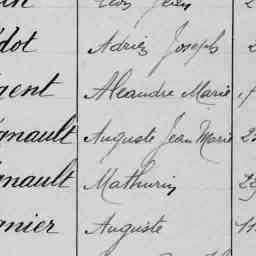 dot Adrien Joseph 2
gent Aleandre Marie
gnault Auguste Jean Marie 2
gnault Mathurin 23
gnier Auguste 11